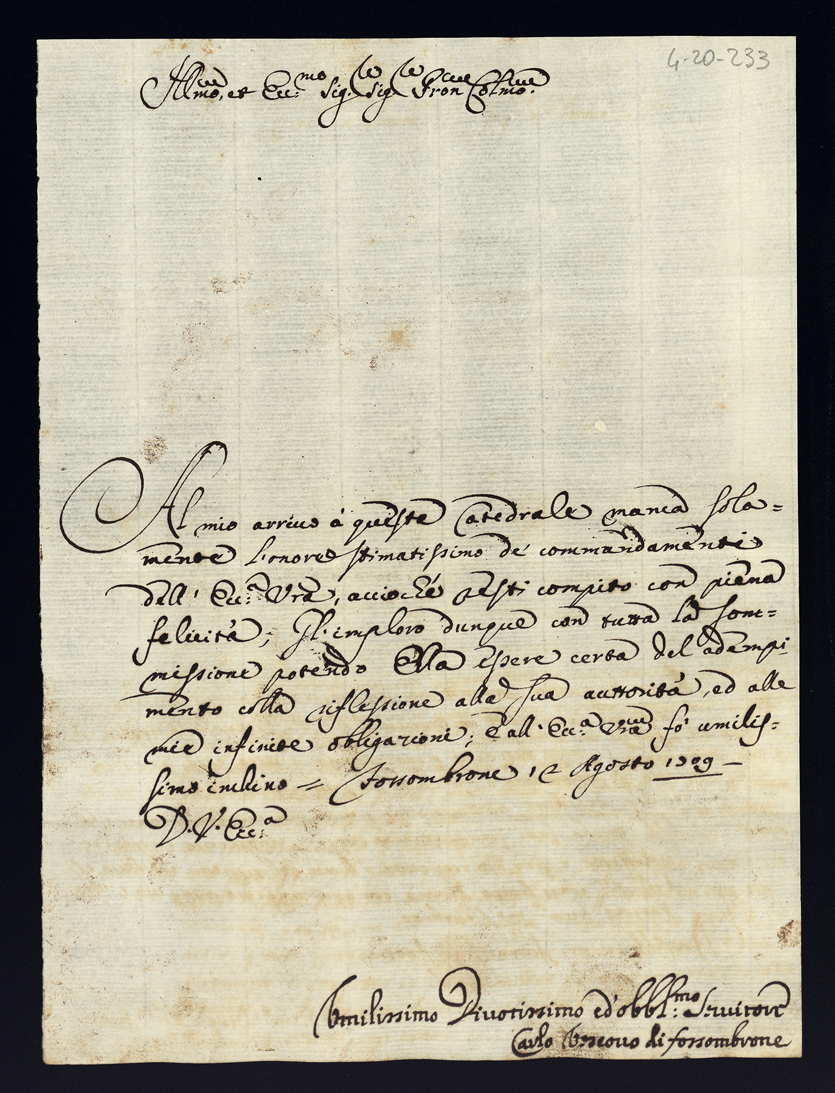 4-20-233
Ill.mo, et Ecc.mo Sig.re Sig.re Pron Col.mo
Al mio arrivo à questa Catedrale manca sola=
mente l'onore stimatissimo de' commandamenti
dell' Ecc.a Vra, acciochè resti compito con piena
felicità; Gl'imploro dunque con tutta la som=
missione potendo Ella essere certa del adempi
mento colla riflessione alla sua auttorità, ed alle
mie infinite obligazioni; E all' Ecc.a Vra fò umilis=
simo inchino = Fossombrone Agosto 1709 -
D. V. Ecc.a
Umilissimo Divotissimo ed obbl.mo Servitore
Carlo Vescovo di fossombrone